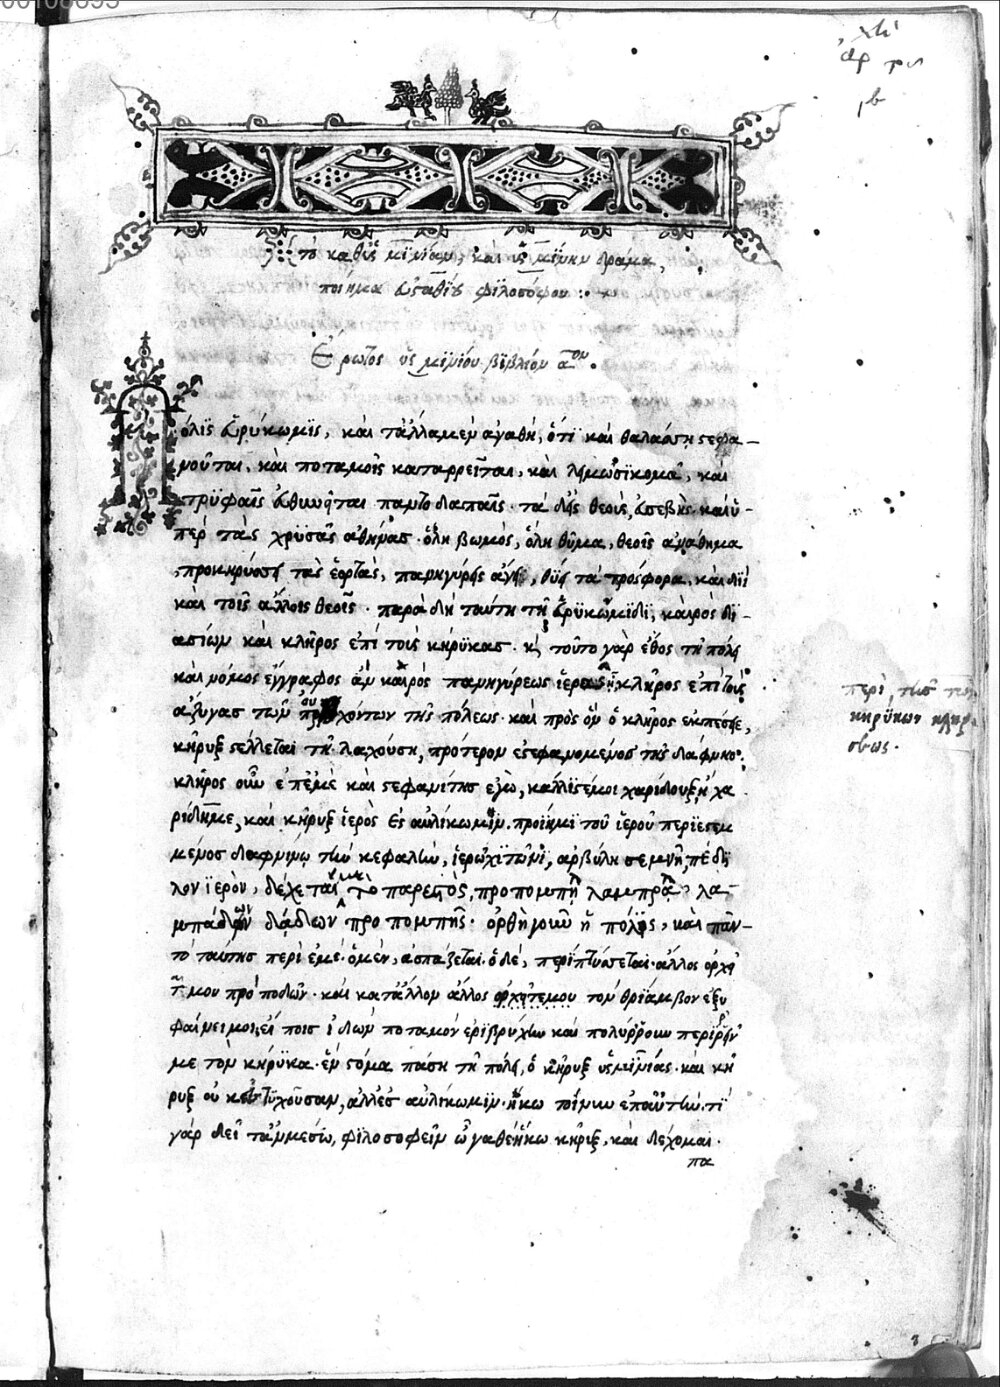 τὸ καθ' ὑσμινίαν, καὶ ὑσμίνην δρᾶμα,
ποίημα εὐσταθίου φιλοσόφου :·
Ἔρωτος ὑσμινίου βιβλίον αον.
Πόλις εὐρύκωμις, καὶ τἄλλα μὲν ἀγαθὴ, ὅτι καὶ θαλάσση στεφα–
νοῦται, καὶ ποταμοῖς καταρρεῖται, καὶ λειμῶσι κομᾶ, καὶ
τρυφαῖς εὐθηνεῖται παντοδαπαῖς· τὰ δ' εἰς θεοὺς, εὐσεβὴς καὶ ὑ–
πὲρ τὰς χρυσᾶς ἀθήνας· ὅλη βωμὸς, ὅλη θῦμα, θεοῖς ἀνάθημα
προκηρύσσει τὰς ἑορτὰς, πανηγύρεις ἄγει, θύει τὰ πρόσφορα, καὶ διὶ
καὶ τοῖς ἄλλοις θεοῖς· παρὰ δὴ ταύτη τῇ εὐρυκώμιδι, καιρὸς δι–
ασίων καὶ κλῆρος ἐπὶ τοῖς κήρυκας· καὶ τοῦτο γὰρ ἔθος τῇ πόλει
καὶ νόμος ἔγγραφος ἂν καιρὸς πανηγύρεως ἱερᾶς κλῆρος ἐπὶ τοῖς
ἄζυγας τῶν προυχόντων τῆς πόλεως· καὶ πρὸς ὃν ὁ κλῆρος ἐκπέσειε,
κῆρυξ στέλλεται τῇ λαχούση, πρότερον ἐστεφανομένος τῆς δάφνης·
κλῆρος οὖν ἐπ' ἐμὲ καὶ στεφανίτης ἐγὼ, κάλλιστέ μοι χαρίδουξ, ἢ χα
ρίδημε, καὶ κῆρυξ ἱερὸς ἐς αὐλίκωμιν. πρόϊημι τοῦ ἱεροῦ περιεστεμ
μένος δαφνίνω τὴν κεφαλὴν, ἱερῶ χιτῶνι, ἀρβύλη σεμνῆ, πέδι
λον ἱερὸν, δέχεται με τὸ παρεστὸς, προπομπῆ λαμπρᾶ, λα–
μπάδων δάδων προπομπῆς· ὀρθὴ γοῦν ἡ πόλις, καὶ πᾶν–
τὸ ταύτης περὶ ἐμέ· ὁ μὲν, ἀσπάζεται· ὁ δὲ, περιπτύσσεται· ἄλλος ὀρχεῖ
ταί μου πρὸ ποδῶν· καὶ κατάλλον ἄλλος ὀρχεῖτέ μου τὸν θρίαμβον ἐξυ
φαίνει μοι, εἴποις ἰδὼν ποταμὸν ἐριβρύχην καὶ πολύρρουν περιρρεῖν
με τὸν κήρυκα· ἓν στόμα πάση τῇ πόλει, ὁ κῆρυξ ὑσμινίας· καὶ κῆ
ρυξ οὐκ ἐς τυχοῦσαν, ἀλλ' ἐς αὐλίκωμιν· ἥκω τοίνυν ἐπ' αὐτὴν· τί
γὰρ δεῖ τἀν μέσω, φιλοσοφεῖν ὦ 'γαθὲ ἥκω κῆριξ, καὶ δέχομαι·
πα
περὶ τῆς τῶν
κηρύκων κληρ
σεως.